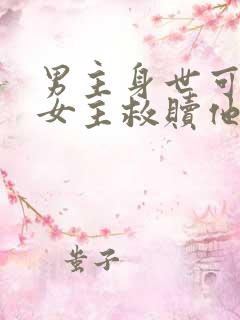 男主身世可
女主救赎他
蚩子